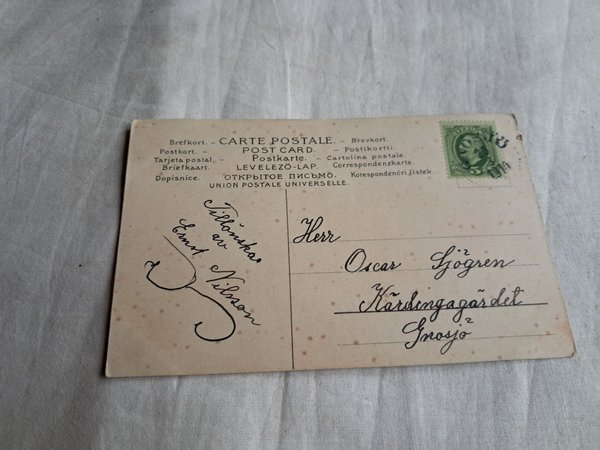 Brefkort. – CARTE POSTALE. – Brevkort.
Postkort. – POST CARD. – Postikortti.
Tarjeta postal. – Postkarte. – Cartolina postale.
Briefkaart. – LEVELEZÖ-LAP. – Correspondenzkarte.
Dopisnice. – ОТКРЫТОЕ ПИСЬМО. – Korespondenčrí lístek.
UNION POSTALE UNIVERSELLE.
Tillönskas
av
Ernst Nilsson
Herr
Oscar Sjögren
Kärdingagärdet
Gnosjö
SVERIGE
5